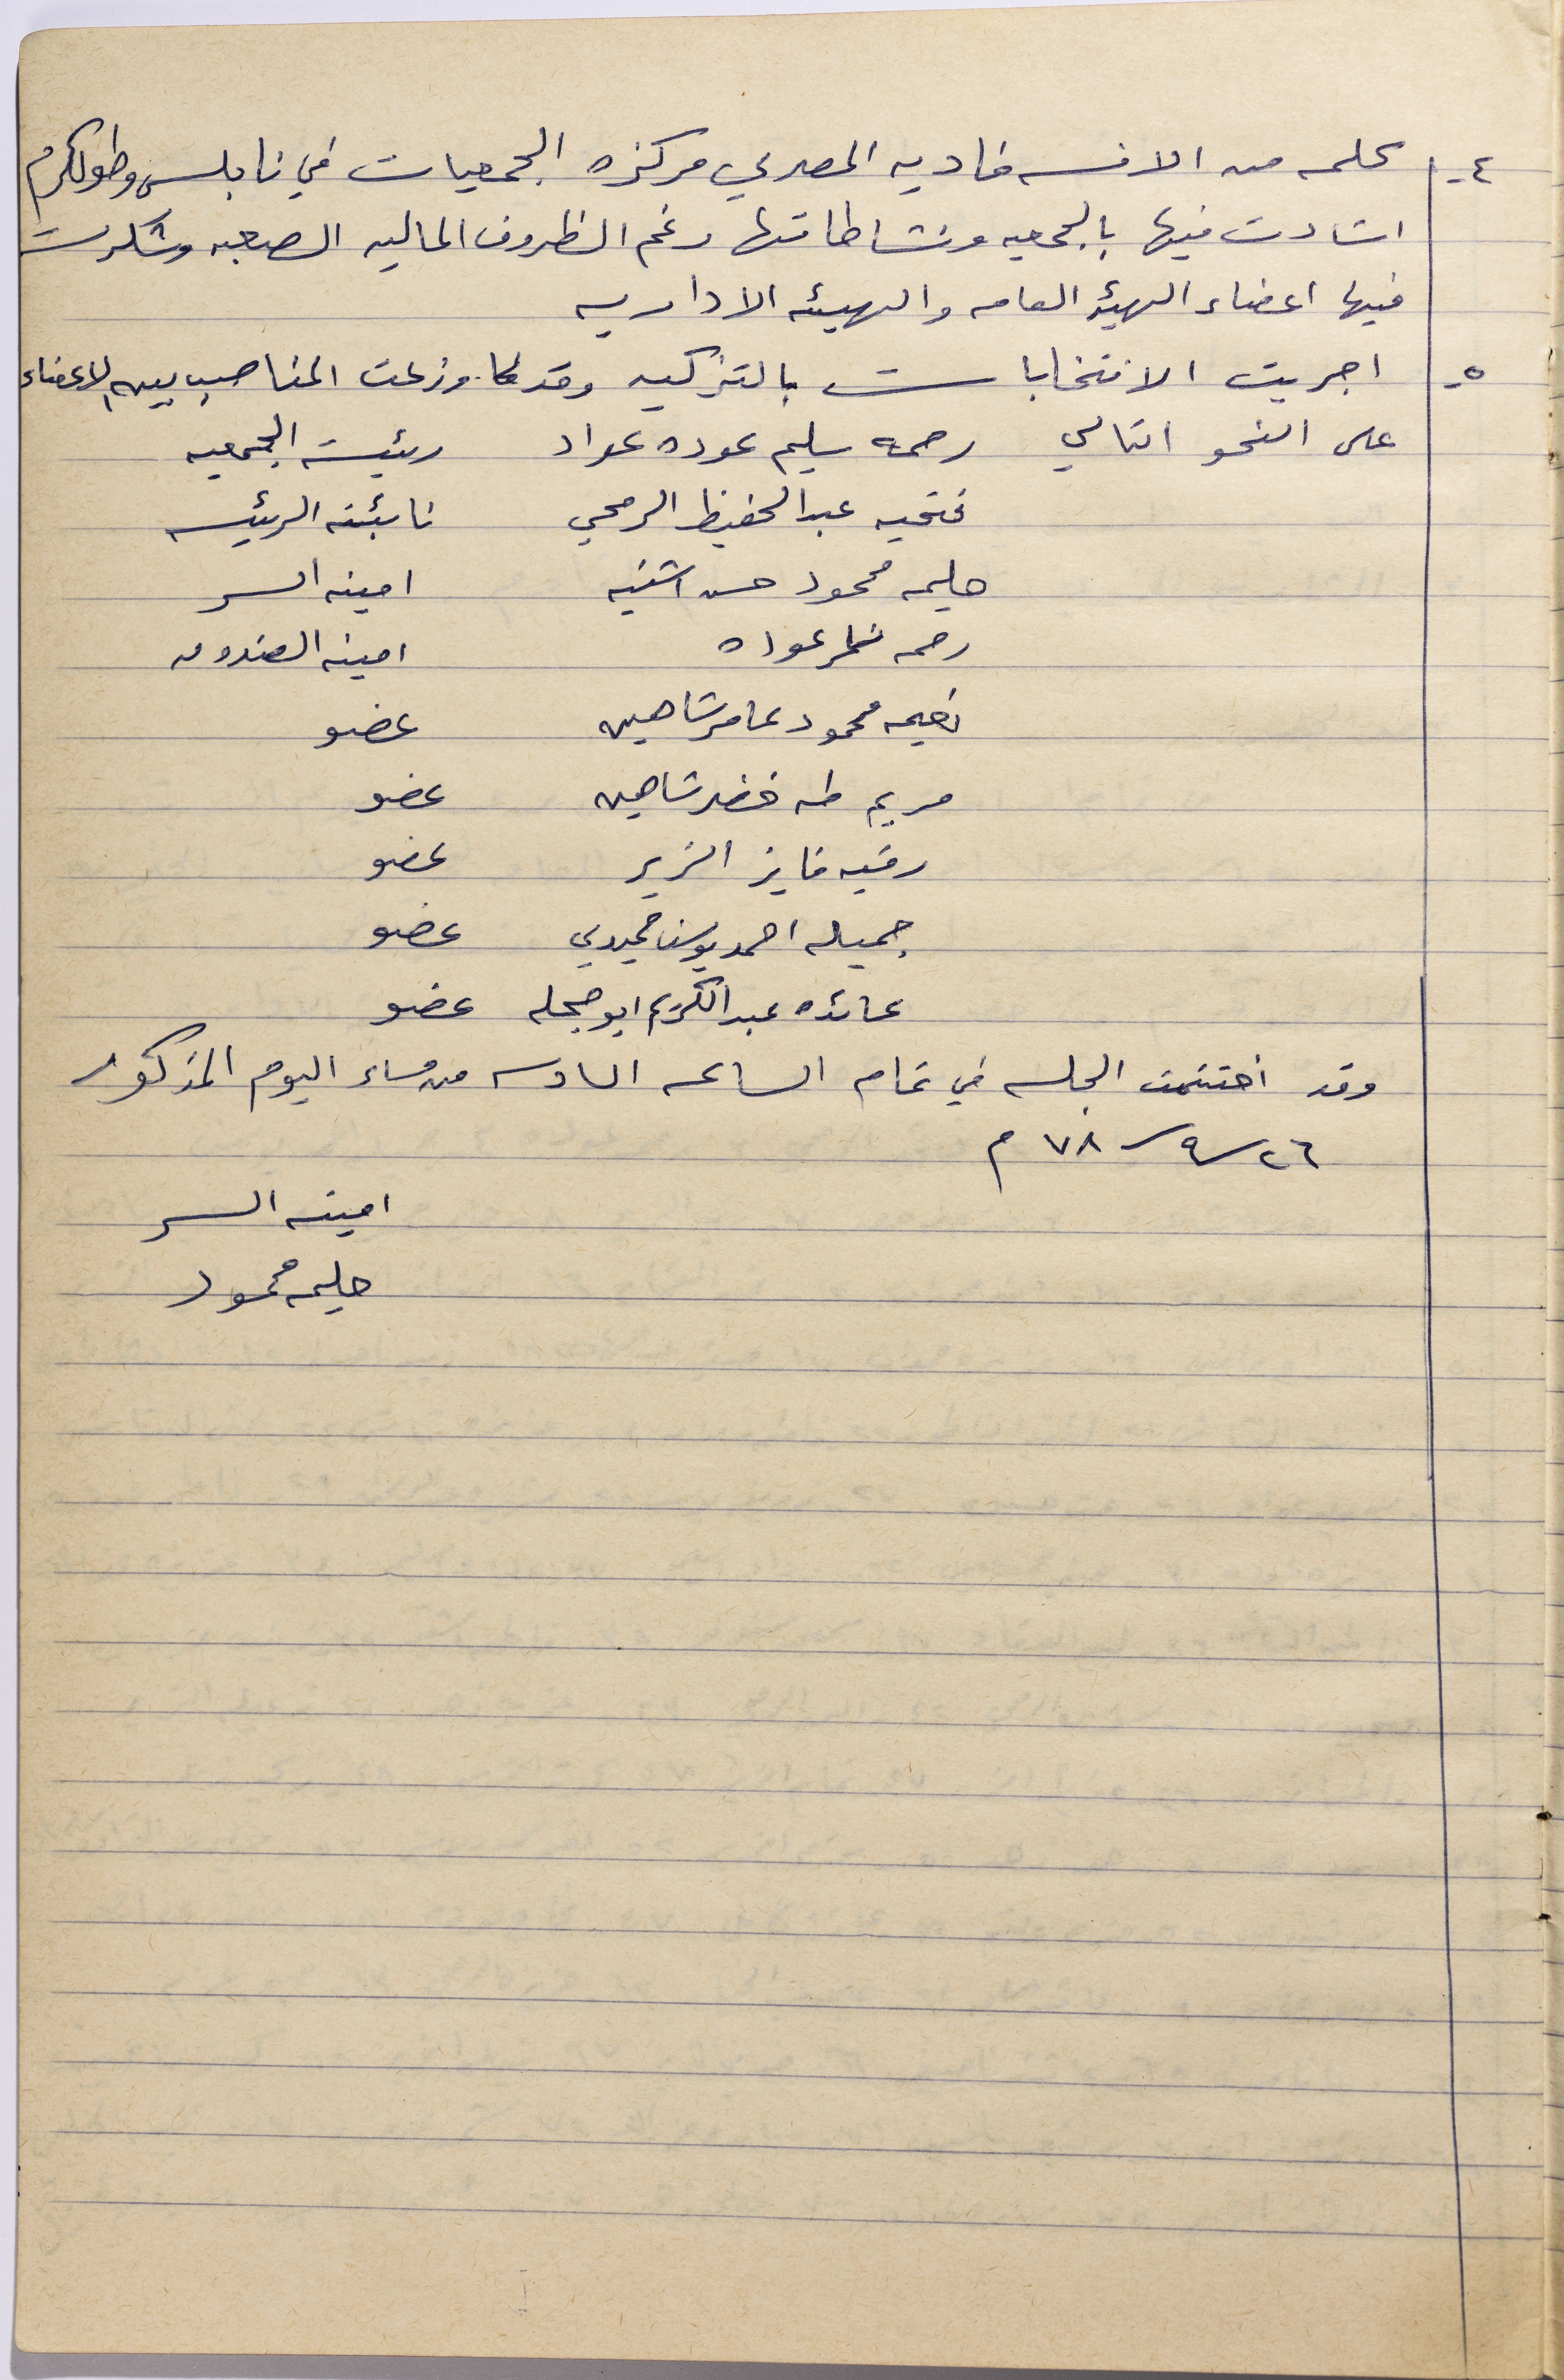 ٤- كلمه من الانسه فاديه المصري مركزه الجمعيات في نابلس وطولكرم
اشادت فيها بالجمعيه ونشاطاتها رغم الظروف الماليه الصعبه وشكرت
فيها اعضاء الهيئه العامه والهيئه الاداريه
٥- اجريت الانتخابات بالتزكيه وقد وزعت المناصب بين الاعضاء
على النحو التالي رحمه سليم عوده عواد رئيسة الجمعيه
فتحيه عبد الحفيظ الرمحي نائبة الرئيسه
حليمه محمود حسن اشنيه امينه السر
رحمه نمر عوده امينه الصندوق
نعيمه محمود عامر شاهين عضو
مريم طه خضر شاهين عضو
رقيه فايز الزير عضو
جميله احمد يوسف حميدي عضو
عائده عبد الكريم ابو حجله عضو
وقد اختتمت الجلسه في تمام الساعه السادسه من مساء اليوم المذكور
٢٦/٩/٧٨ م
امينه السر
حليمه محمود